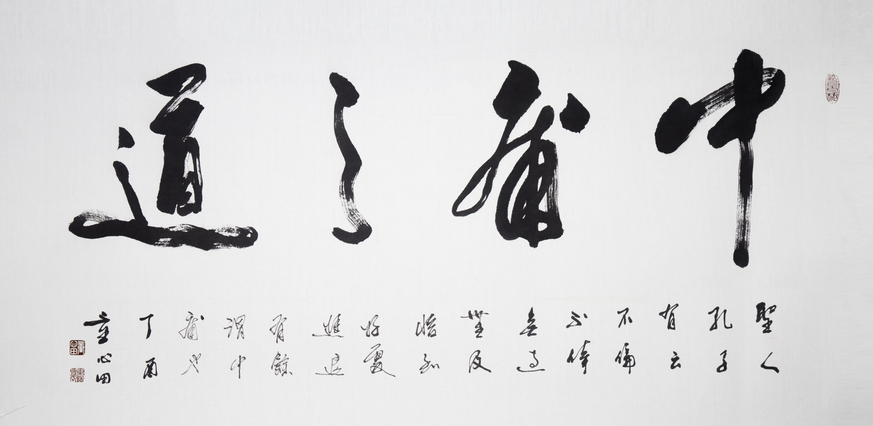 中庸之道
聖人
孔子
有云
不偏
不倚
無过
無及
恰到
好處
進退
有餘
謂中
庸也
丁酉
童心田